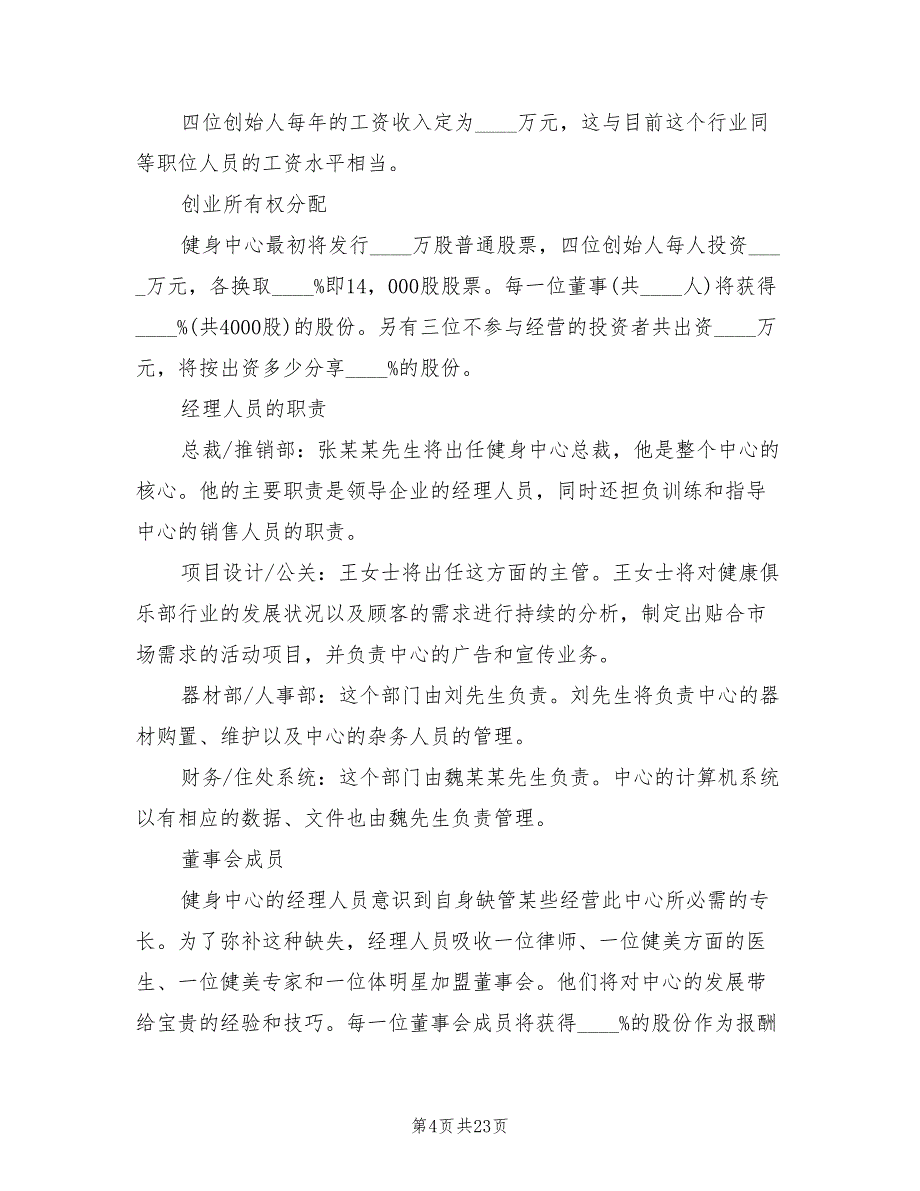 四位创始人每年的工资收入定为____万元，这与目前这个行业同
等职位人员的工资水平相当。
创业所有权分配
健身中心最初将发行____万股普通股票，四位创始人每人投资___
_万元，各换取____%即14，000股股票。每一位董事(共____人)将获得
____%(共4000股)的股份。另有三位不参与经营的投资者共出资____万
元，将按出资多少分享____%的股份。
经理人员的职责
总裁/推销部：张某某先生将出任健身中心总裁，他是整个中心的
核心。他的主要职责是领导企业的经理人员，同时还担负训练和指导
中心的销售人员的职责。
项目设计/公关：王女士将出任这方面的主管。王女士将对健康俱
乐部行业的发展状况以及顾客的需求进行持续的分析，制定出贴合市
场需求的活动项目，并负责中心的广告和宣传业务。
器材部/人事部：这个部门由刘先生负责。刘先生将负责中心的器
材购置、维护以及中心的杂务人员的管理。
财务/住处系统：这个部门由魏某某先生负责。中心的计算机系统
以有相应的数据、文件也由魏先生负责管理。
董事会成员
健身中心的经理人员意识到自身缺管某些经营此中心所必需的专
长。为了弥补这种缺失，经理人员吸收一位律师、一位健美方面的医
生、一位健美专家和一位体明星加盟董事会。他们将对中心的发展带
给宝贵的经验和技巧。每一位董事会成员将获得____%的股份作为报酬
第4页共23页